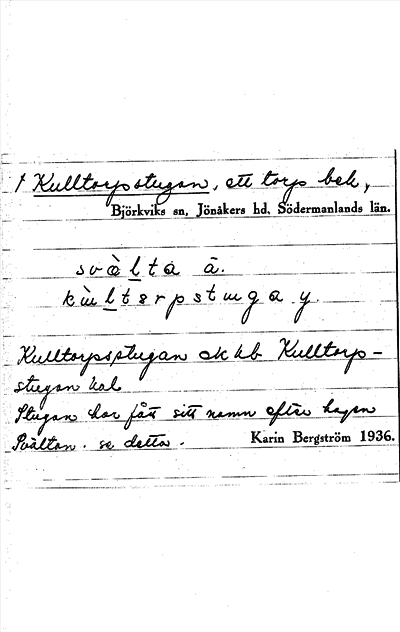 † Kulltorpsstugan, ett torp beb,
Björkviks sn, Jönåkers hd, Södermanlands län.
svàlta ā.
kùltɘrpstuga y.
Kulltorpsstugan ek kb Kulltorp-
stugan hal
Stugan har fått sitt namn efter hagen
Svältan. se detta.
Karin Bergström 1936.